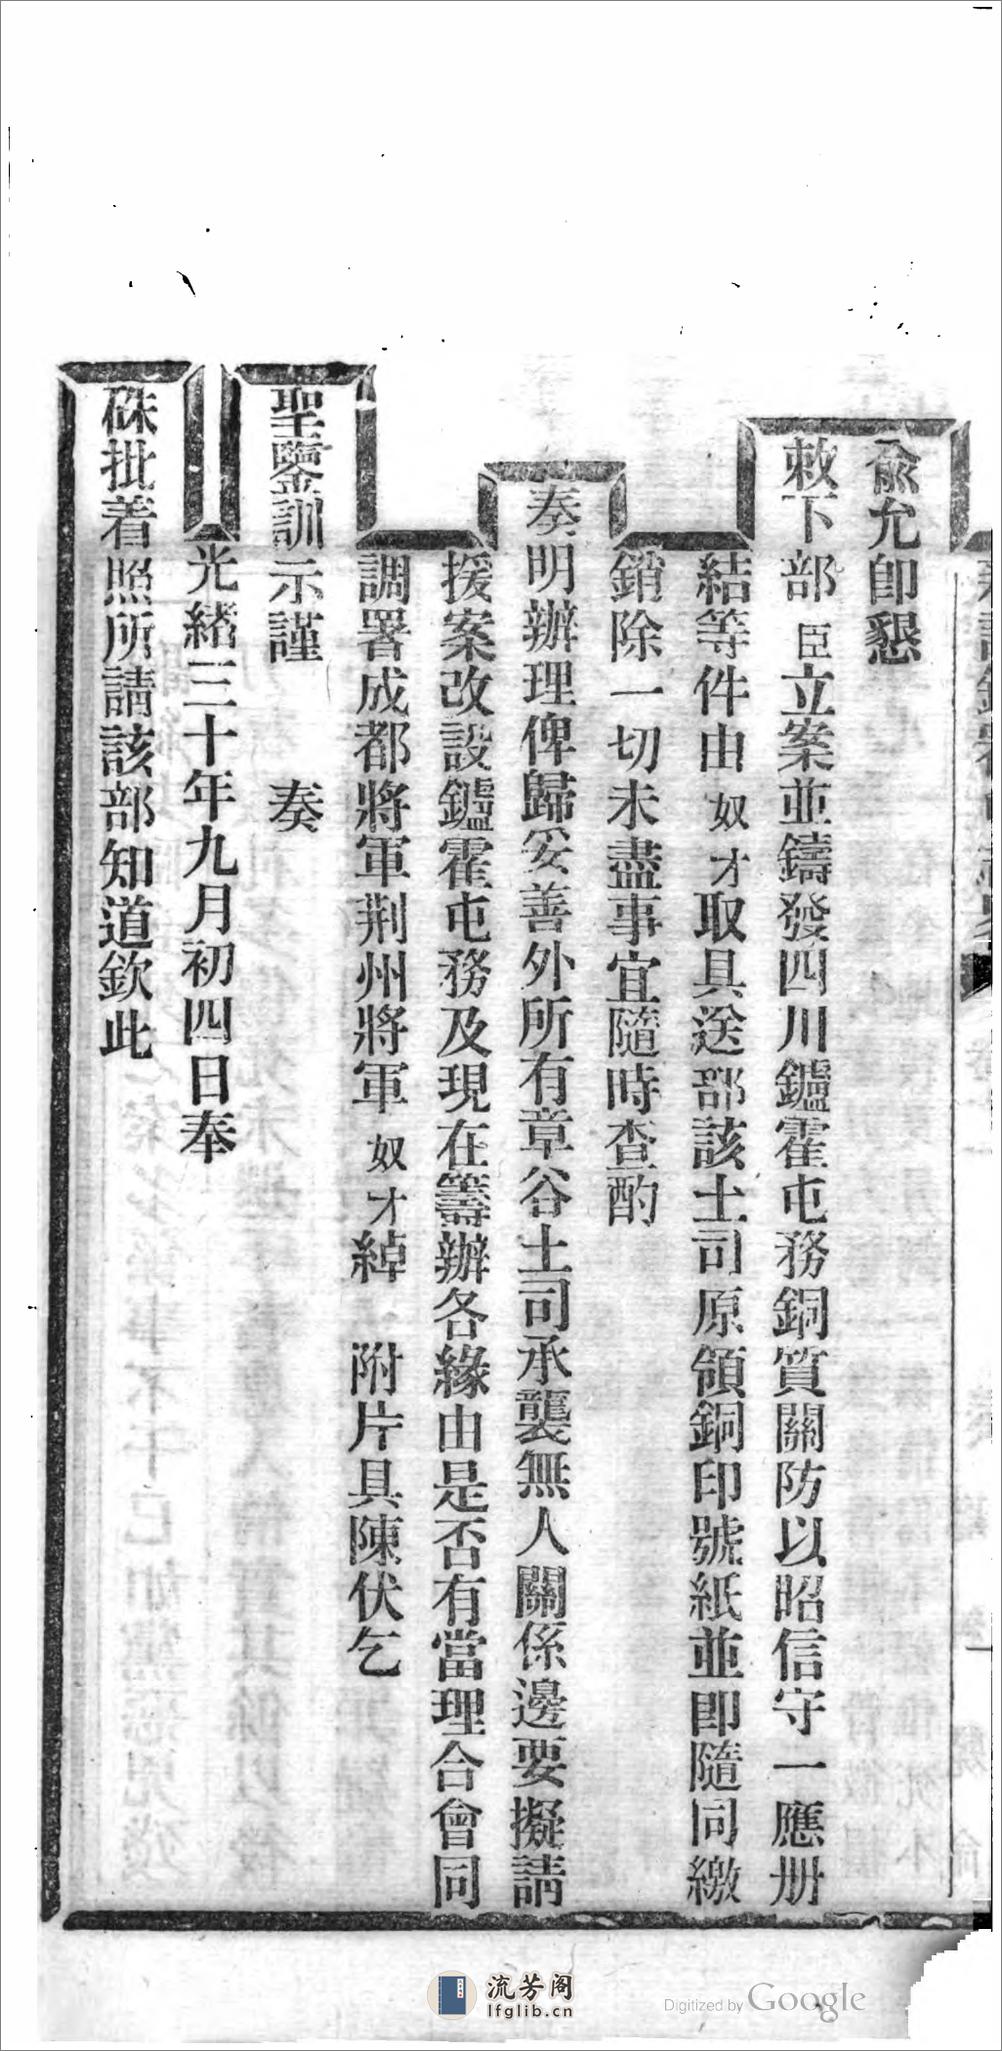 俞允卽懇
敕下部臣立案並鑄發四川鑪霍屯務銅質關防以昭信守一應册
結等件由奴才取具送部該土司原領銅印號紙並卽隨同繳
銷除一切未盡事宜隨時查酌
奏明辦理俾歸妥善外所有章谷土司承襲無人關係邊要擬請
援案改設鑪霍屯務及現在籌辦各緣由是否有當理合會同
調署成都將軍荆州將軍奴才綽 附片具陳伏乞
聖鑒訓示謹 奏
光緒三十年九月初四日奉
硃批着照所請該部知道欽此
流芳阁
lfglib.cn
Digitized by Google